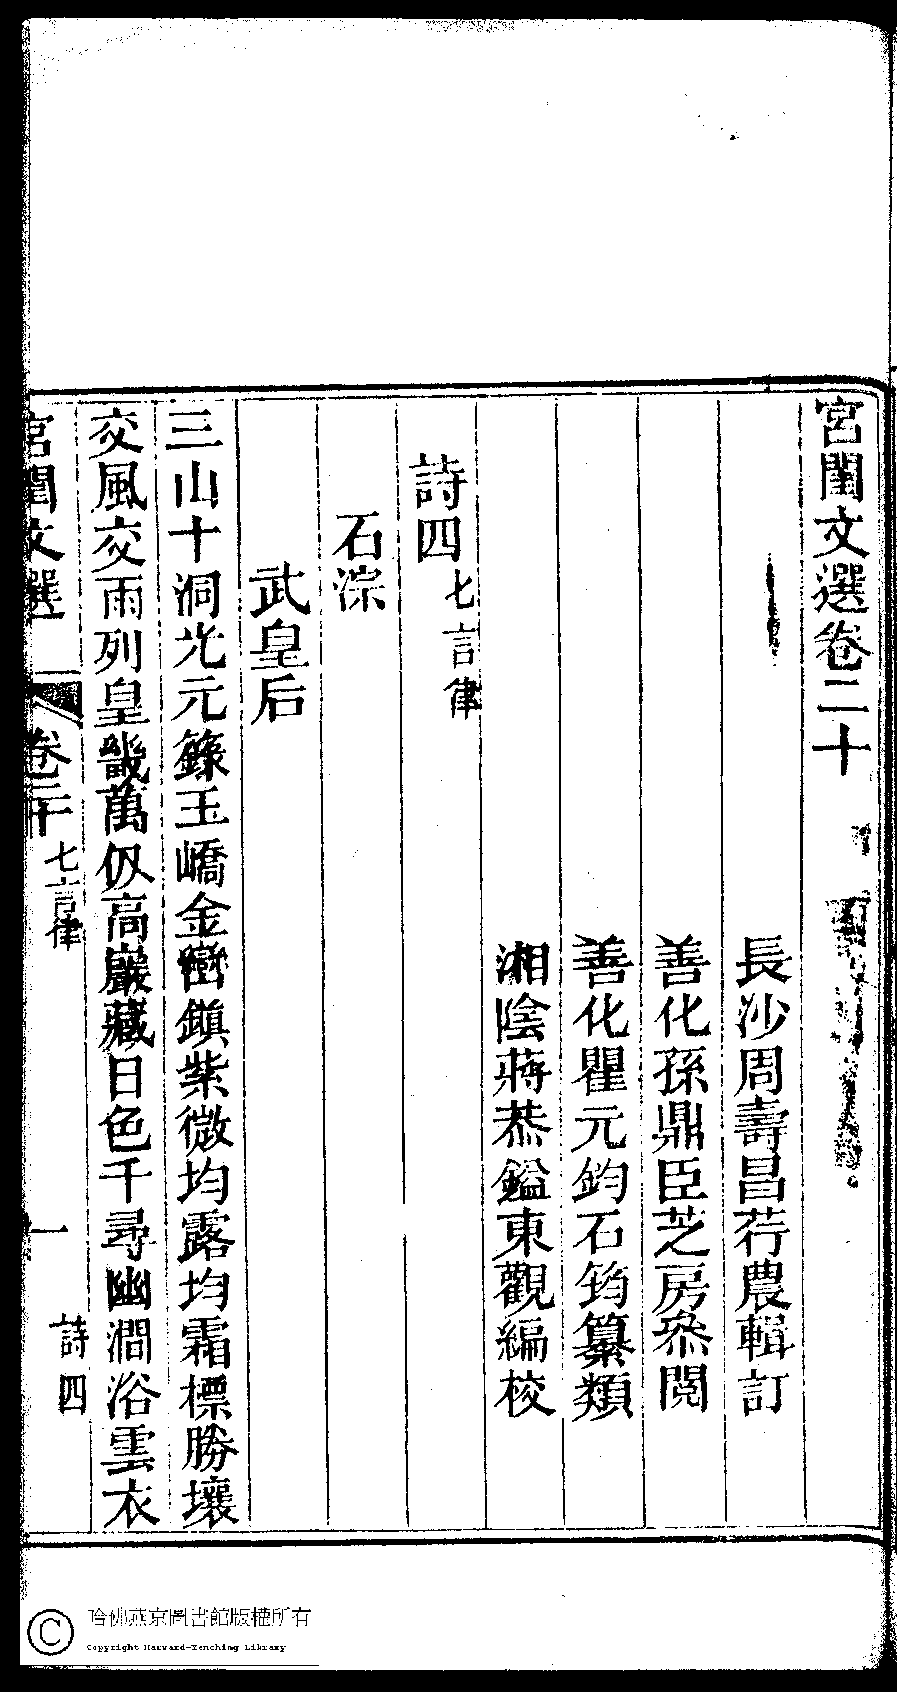 宮閨文選卷二十
長沙周壽昌荇農輯訂
善化孫鼎臣芝房叅閱
善化瞿元鈞石筠纂類
湘陰蔣恭鎰東觀編校
詩四 七言律
石淙
武皇后
三山十洞光元籙玉嶠金巒鎭紫微均露均霜標勝壤
交風交雨列皇畿萬仭高巖藏日色千尋幽澗浴雲衣
宮閨文選 卷二十 七言律 一 詩四
哈佛燕京圖書館版權所有
Copyright Harvard-Yenching Library